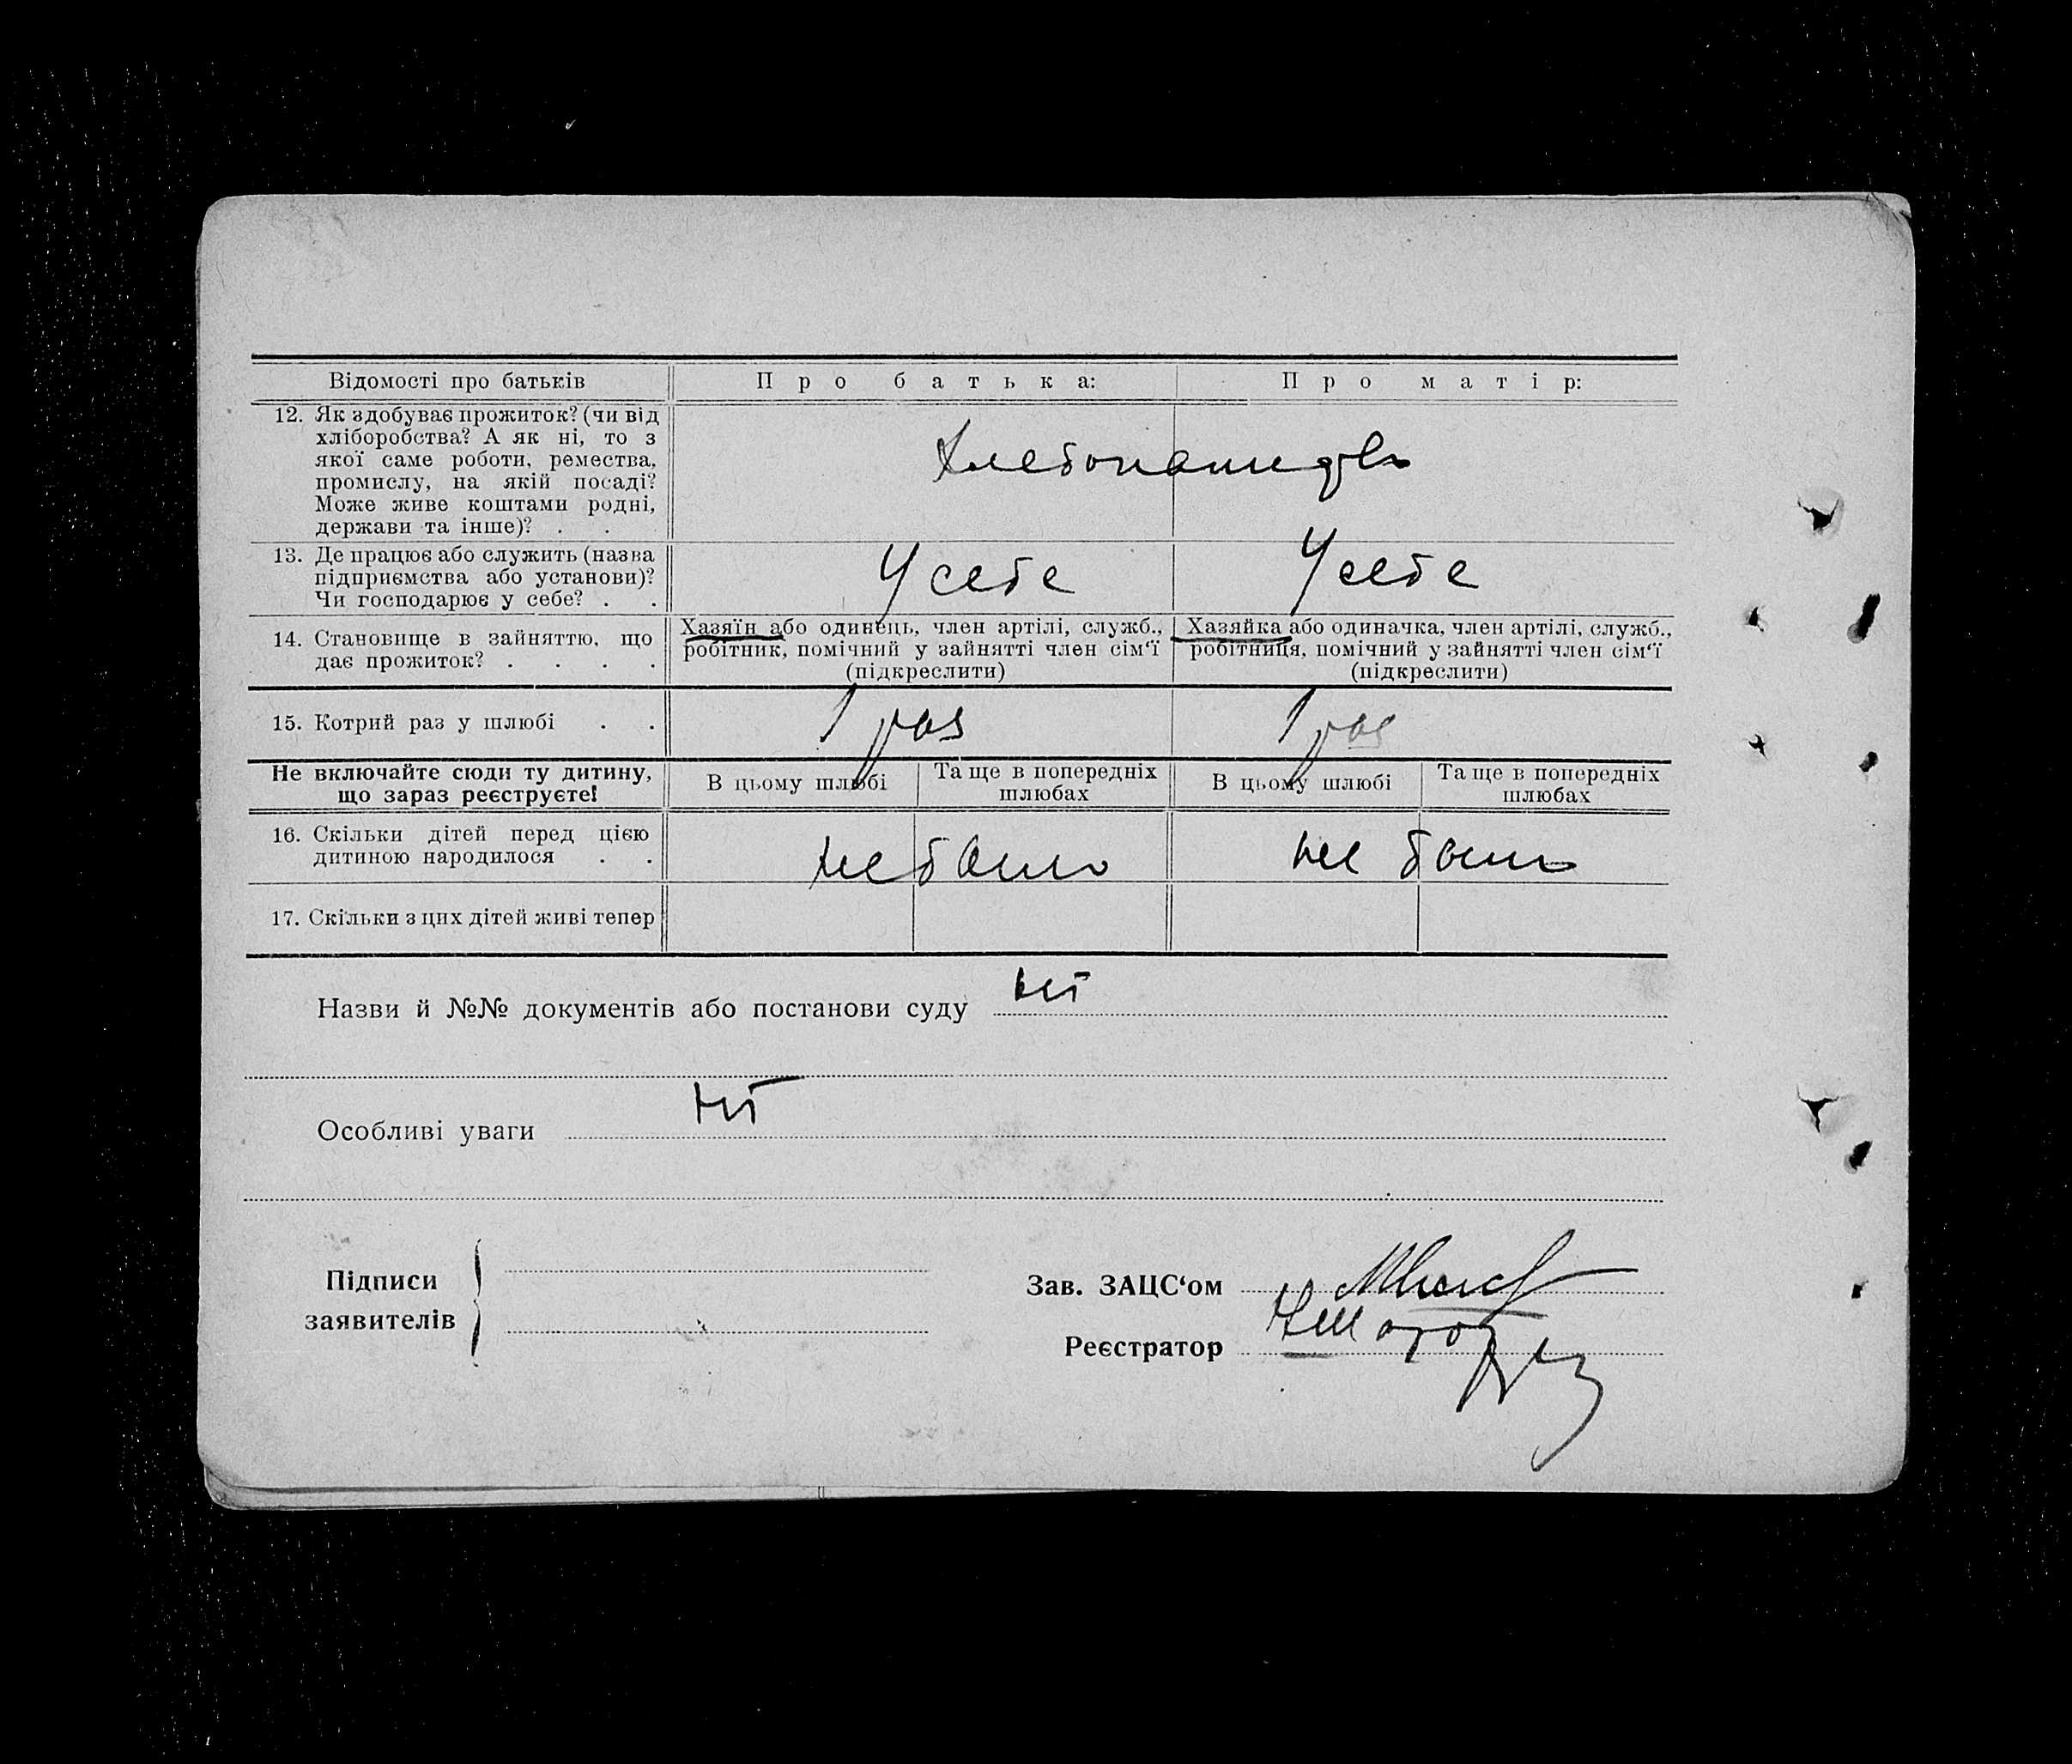 Відомості про батьків
Про батька:
Про матір:
12. Як здобуває прожиток? (чи від
хліборобства? А як ні, то з
якої саме роботи, ремества,
промислу, на якій посаді?
Може живе коштами родні,
держави та інше)? . .
13. Де працює або служить (назва
підприємства або установи)?
Чи господарює у себе? . .
У себе
У себе
14. Становище в зайняттю, що
дає прожиток? . . . .
Хазяїн або одинець, член артілі, служб.,
робітник, помічний у зайнятті член сім'ї
(підкреслити)
Хазяйка або одиначка, член артілі, служб.,
робітниця, помічний у зайнятті член сім'ї
(підкреслити)
15. Котрий раз у шлюбі . .
1 раз
1 раз
Не включайте сюди ту дитину,
що зараз реєструєте!
В цьому шлюбі
Та ще в попередніх
шлюбах
В цьому шлюбі
Та ще в попередніх
шлюбах
16. Скільки дітей перед цією
дитиною народилося . .
не было
не было
17. Скільки з цих дітей живі тепер
Назви й №№ документів або постанови суду
ні
Особливі уваги
ні
Підписи
заявителів
Зав. ЗАЦС'ом
Реєстратор